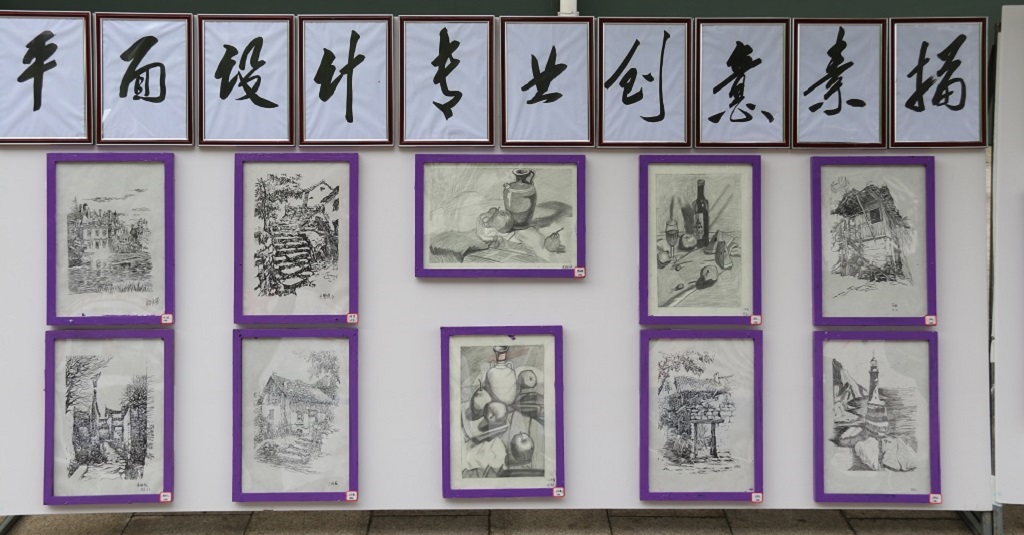 平面设计专业创意素描